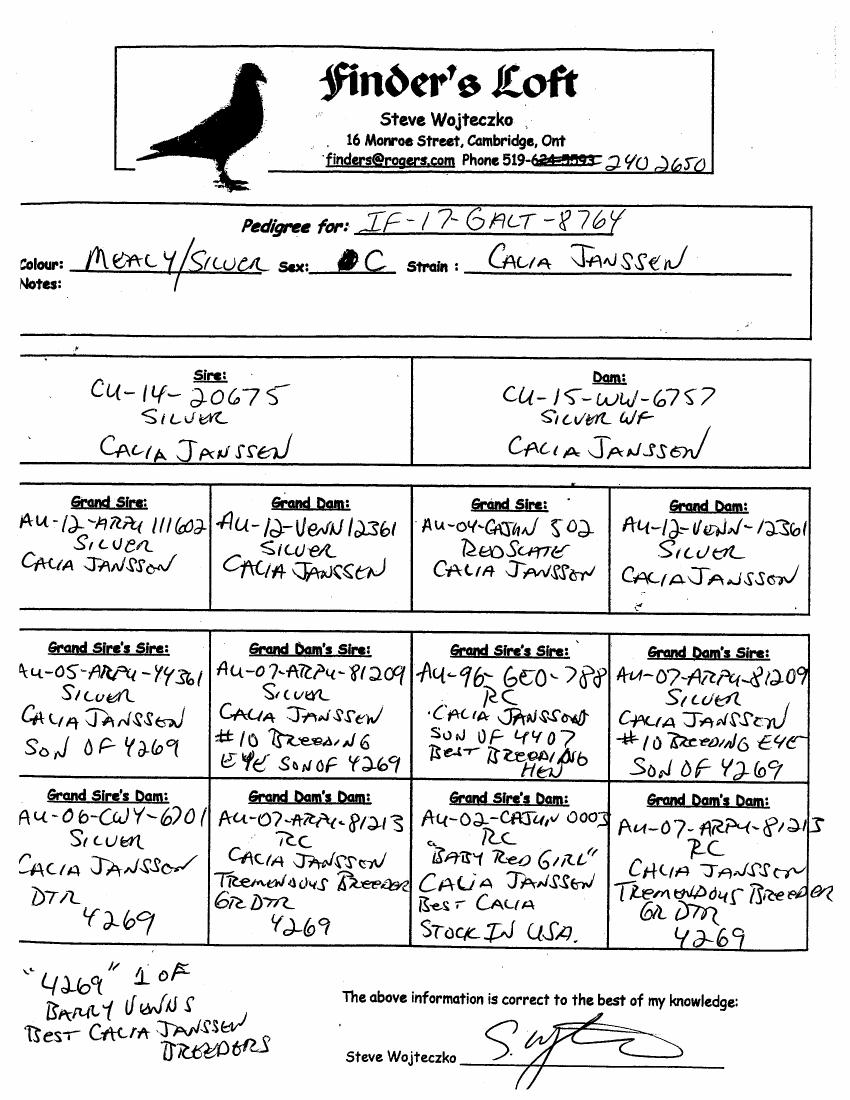 Finder's Loft
Steve Wojteczko
16 Monroe Street, Cambridge, Ont
finders@rogers.com Phone 519-624-5593 240 2650
Pedigree for: IF-17-GALT-8764
Colour: MEALY/SILVER Sex: C Strain : CALIA JANSSEN
Notes:
Sire:
CU-14-20675
SILVER
CALIA JANSSEN
Dam:
CU-15-WW-6757
SILVER WF
CALIA JANSSEN
Grand Sire:
AU-12-ARPU 111602
SILVER
CALIA JANSSON
Grand Dam:
AU-12-VENN 12361
SILVER
CALIA JANSSEN
Grand Sire:
AU-04-CAJUN 502
RED SLATE
CALIA JANSSON
Grand Dam:
AU-12-VENN-12361
SILVER
CALIA JANSSON
Grand Sire's Sire:
AU-05-ARPU-44361
SILVER
CALIA JANSSEN
SON OF 4269
Grand Dam's Sire:
AU-07-ARPU-81209
SILVER
CALIA JANSSEN
#10 BREEDING
EYE SON OF 4269
Grand Sire's Sire:
AU-96-GEO-788
RC
CALIA JANSSON
SON OF 4407
BEST BREEDING
HEN
Grand Dam's Sire:
AU-07-ARPU-81209
SILVER
CALIA JANSSEN
#10 BREEDING EYE
SON OF 4269
Grand Sire's Dam:
AU-06-CWY-6701
SILVER
CALIA JANSSON
DTR
4269
Grand Dam's Dam:
AU-07-ARPU-81213
RC
CALIA JANSSEN
TREMENDOUS BREEDER
GR DTR
4269
Grand Sire's Dam:
AU-02-CAJUN 0003
RC
"BABY RED GIRL"
CALIA JANSSEN
BEST CALIA
STOCK IN USA.
Grand Dam's Dam:
AU-07-ARPU-81213
RC
CALIA JANSSEN
TREMENDOUS BREEDER
GR DTR
4269
"4269" 1 OF
BARRY VENNS
BEST CALIA JANSSEN
BREEDERS
The above information is correct to the best of my knowledge:
Steve Wojteczko